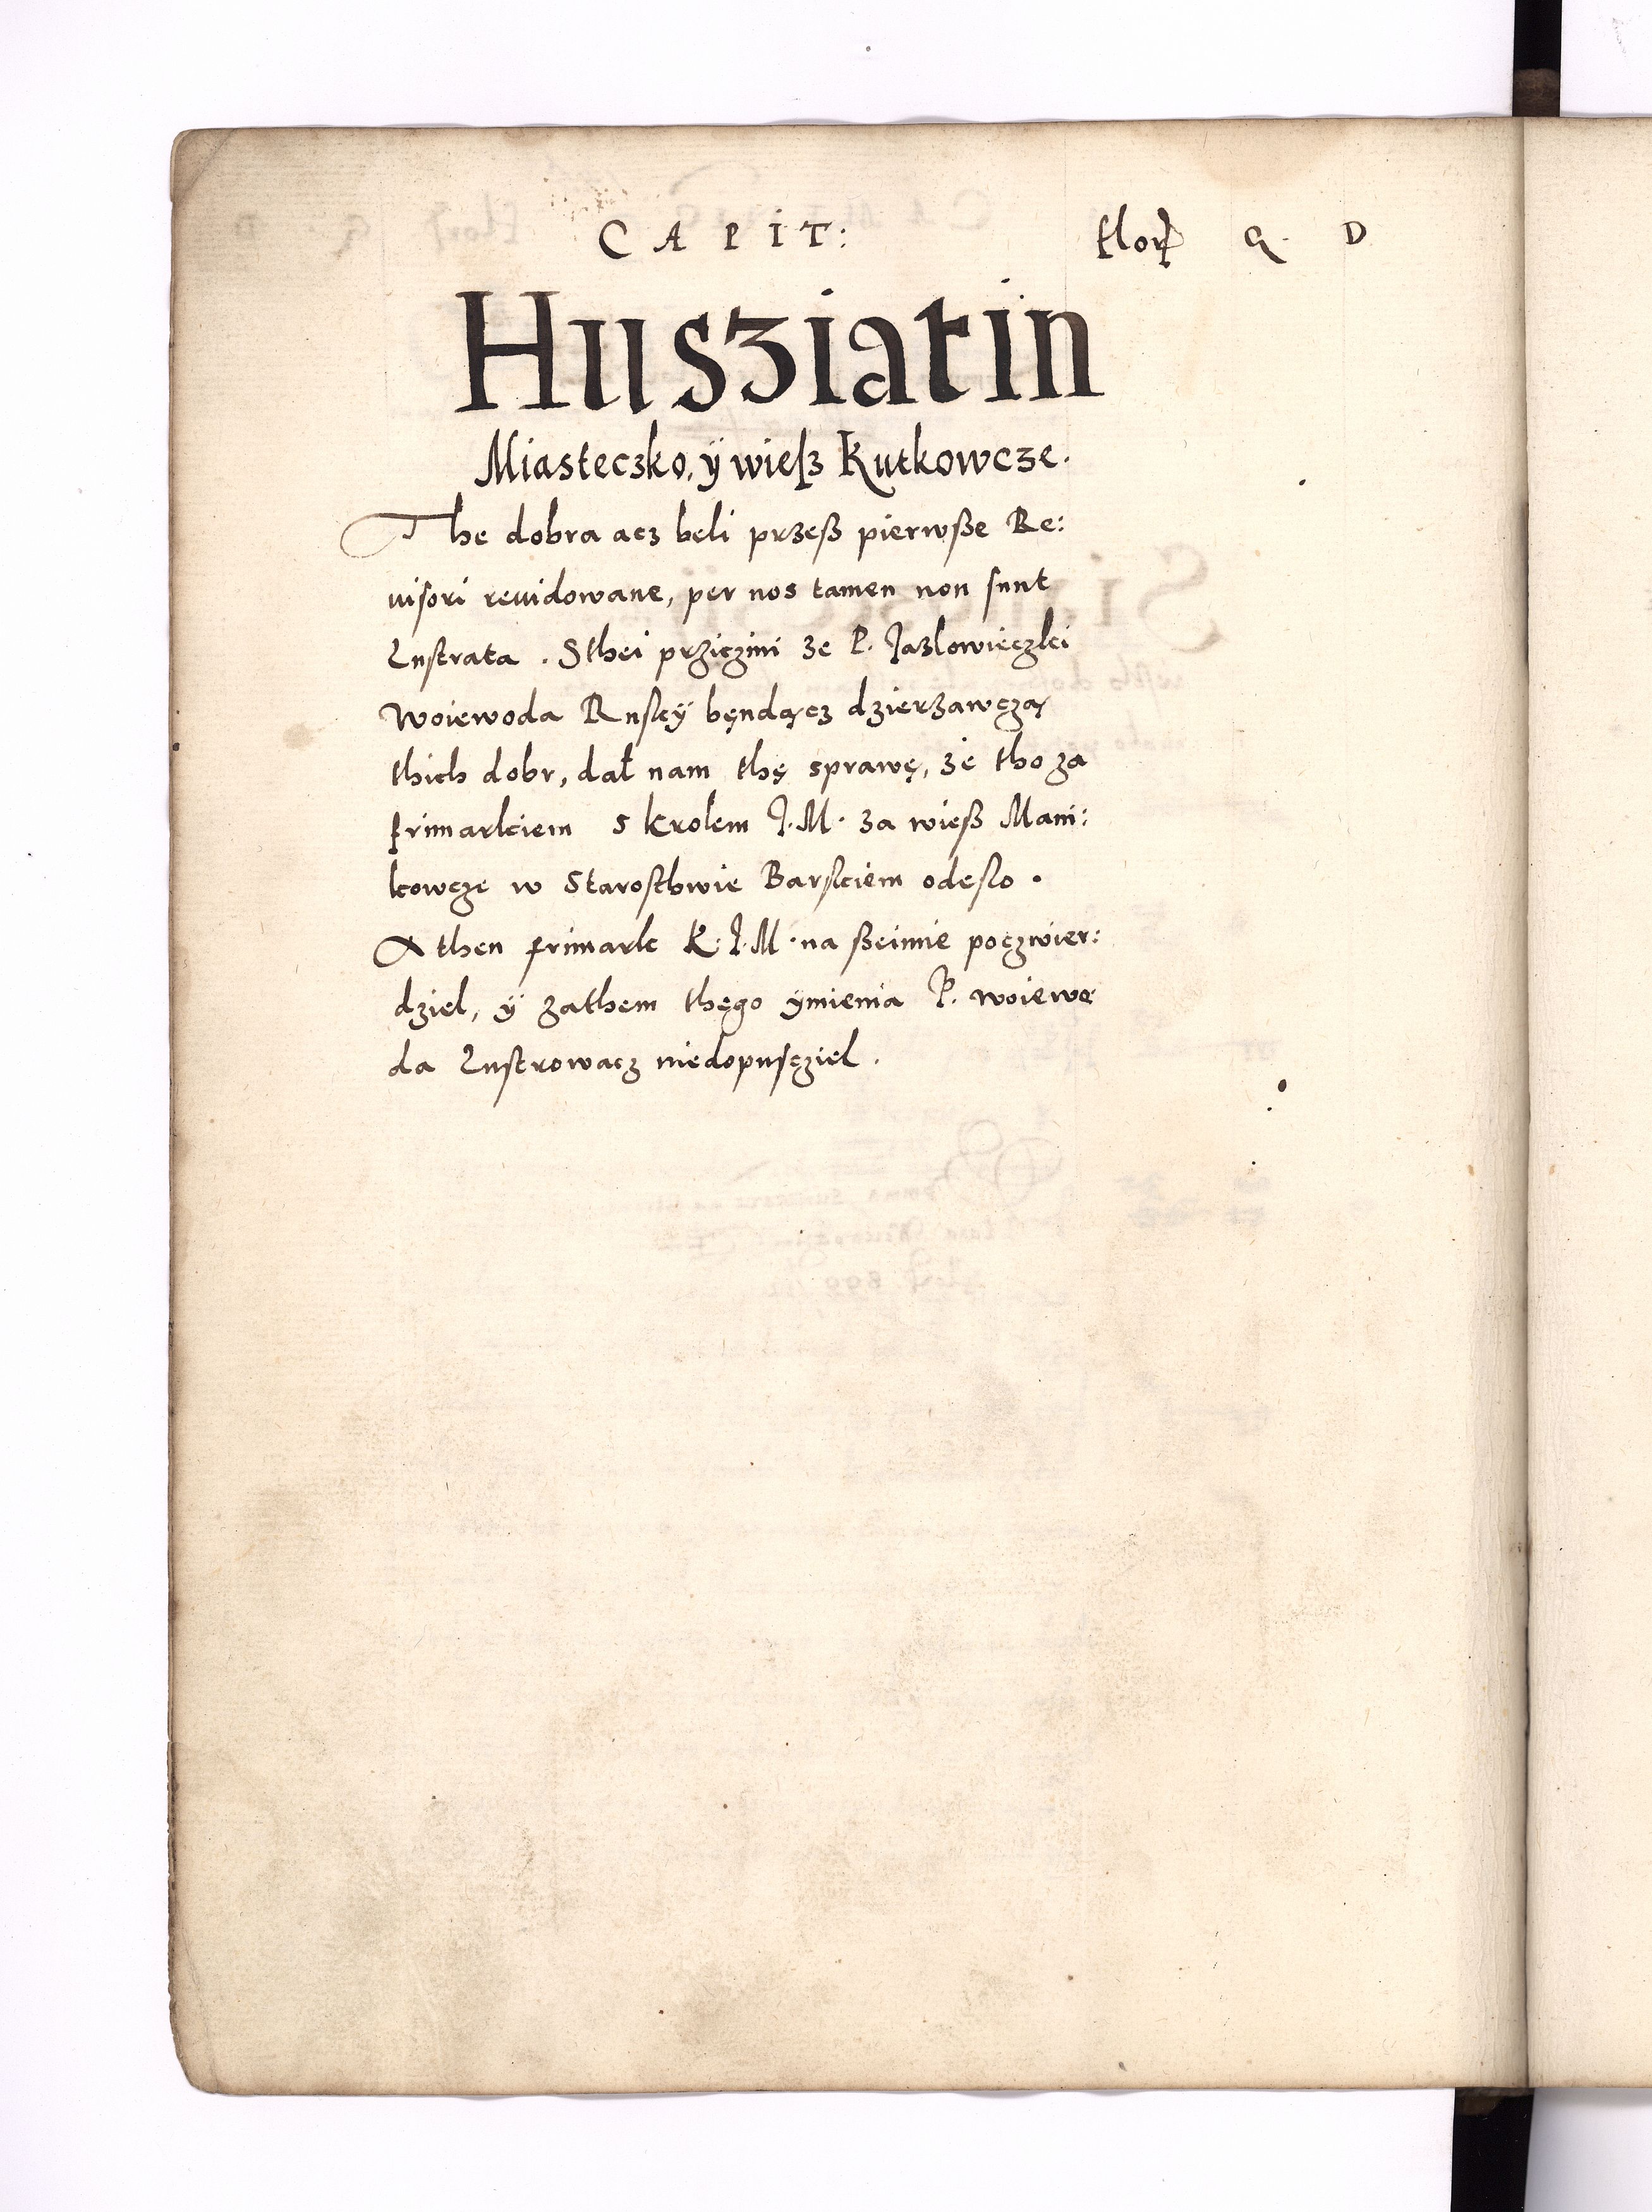 CAPIT: flor G. D
Husziatin
Miasteczko, ÿ wiesz Kutkowcze.
The dobra acz beli przeß pierwße Re:
uisori reuidowane, per nos tamen non sunt
Lustrata. Sthei prziczini ze P. Jazlowieczki
Woiewoda Ruskÿ będącz dzierzawczą
thich dobr, dał nam thę sprawę, że tho za
frimarkiem s krolem J.M. za wieß Mani:
kowcze w Starosthwie Barskiem odeslo.
A then frimark K.J.M. na ßeimie poczwier:
dziel, ÿ zathem thego ÿmienia P. woiewo
da Lustrowacz niedopuscziel.